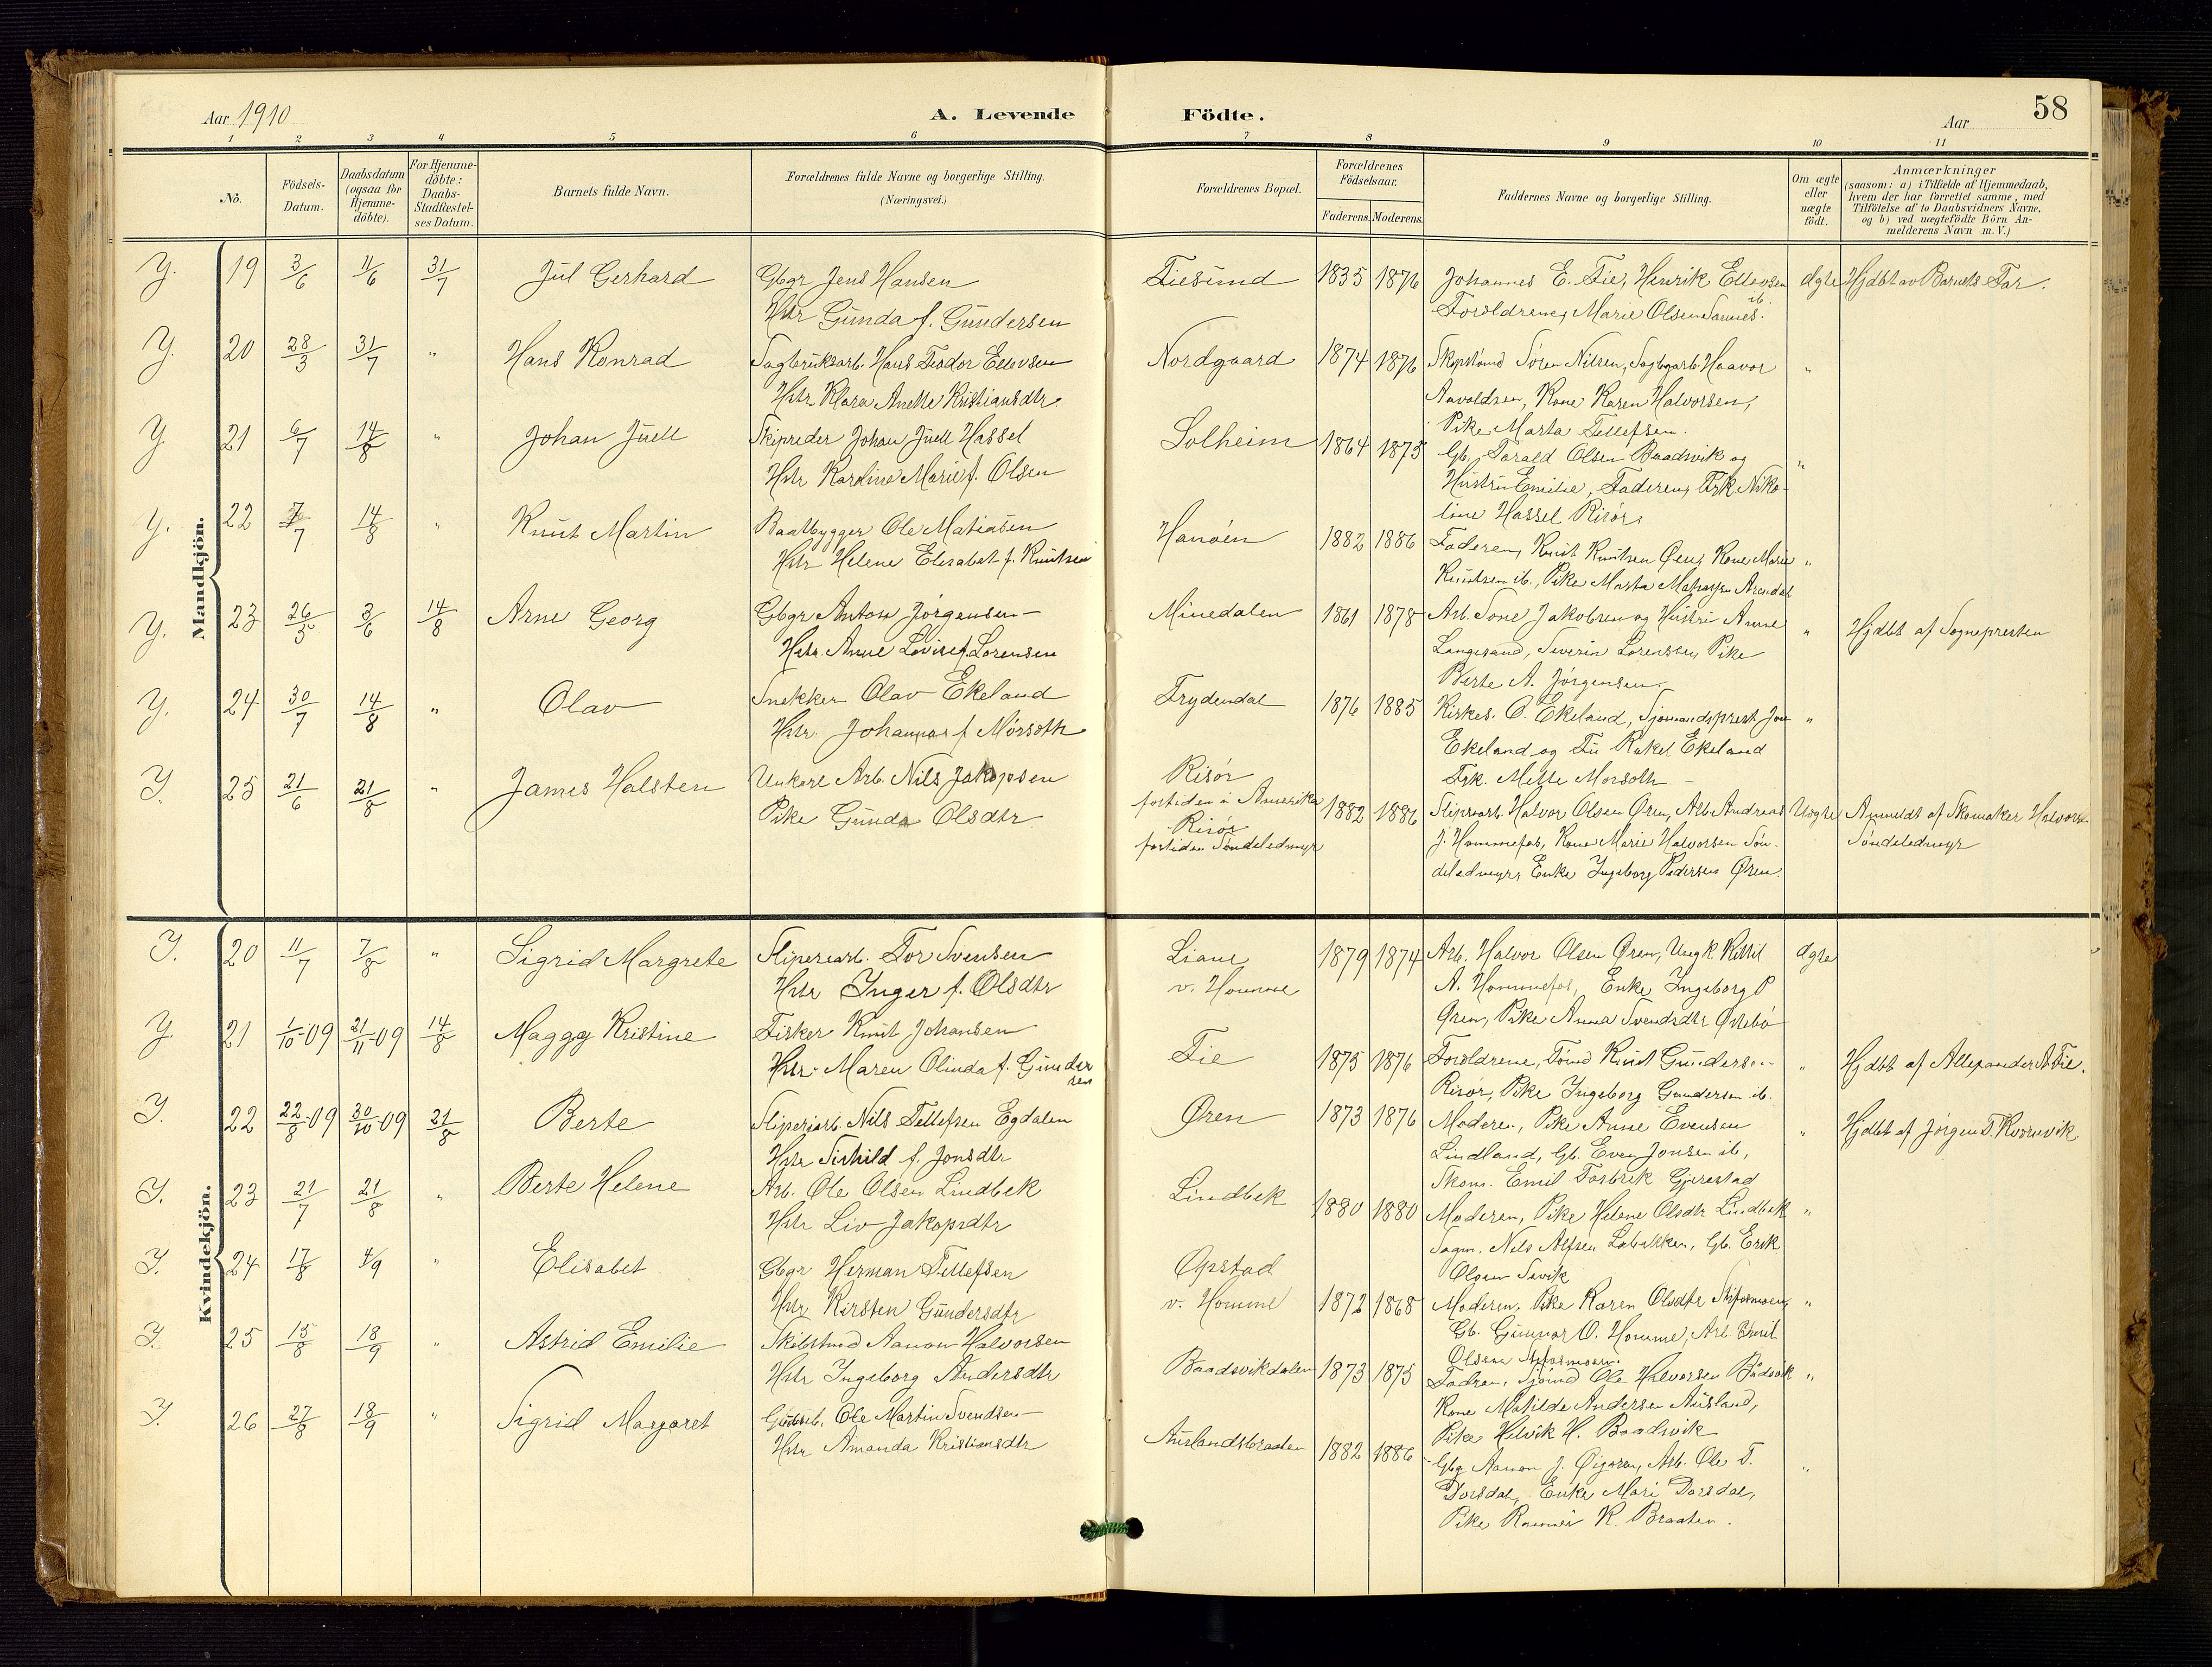 Aar 1910
A. Levende
Födte.
Aar
58
1 2 3 4 5 6 7 8 9 10 11
No.
Födsels-
Datum.
Daabsdatum
(ogsaa for
Hjemme-
döbte).
For Hjemme-
döbte:
Daabs-
Stadfæstel-
ses Datum.
Barnets fulde Navn.
Forældrenes fulde Navne og borgerlige Stilling.
(Næringsvei.)
Forældrenes Bopæl.
Forældrenes
Födselsaar.
Faderens. Moderens.
Faddernes Navne og borgerlige Stilling.
Om ægte
eller
uægte
födt.
Anmærkninger
(saasom: a) i Tilfælde af Hjemmedaab,
hvem der har forrettet samme, med
Tilföielse af to Daabsvidners Navne,
og b) ved uægtefödte Börn An-
melderens Navn m. V.)
Mandkjön.
Y. 19 3/6 11/6 31/7 Jul Gerhard
Gbgr Jens Hansen
Hstr Gunda f. Gundersen
Fiesund 1835 1876
Johannes E. Fie, Henrik Ellevsen ib.
Foreldrene, Marie Olsen
ægte
Hjdbt av Barnets Far.
Y. 20 28/3 31/7 " Hans Konrad
Sagbruksarb. Hans Teodor Ellevsen
Hstr Klara Anette Kristiansdtr
Nordgaard 1874 1876
Søren Nilsen, Haavor
Aavoldsen, Kone Karen Halvorsen,
Pike Marta Tellefsen.
"
Y. 21 6/7 14/8 " Johan Juell
Skipreder Johan Juell Hassel
Hstr Karoline Marie f. Olsen
Solheim 1864 1873
Gb. Tarald Olsen Baadsvik og
Hustru Emilie, Faderen, Frk. Niko-
line Hassel Risør
"
Y. 22 7/7 14/8 " Knut Martin
Baatbygger Ole Matiasen
Hstr Helene Elisabet f. Knutsen
Hanøen 1882 1886
Faderen, Knut Knutsen Øen, Kone Marie
Knutsen ib., Pike Marta Arendal
"
Y. 23 26/3 3/6 14/8 Arne Georg
Gbgr Anton Jørgensen
Hstr. Anne Lovise f. Lorensen
Minedalen 1861 1878
Arb. Tone Jakobsen og Hustru Anne
Langesand, Severin Lorensen, Pike
Berte A. Jørgensen.
"
Hjdbt af Sognepresten
Y. 24 30/7 14/8 " Olav
Snekker Olav Ekeland
Hstr. Johanna f. Mørsoth
Frydendal 1876 1885
Kirkes. O. Ekeland, Sjømandsprest Jon
Ekeland og Fru Rakel Ekeland
Frk. Mette Morsoth
"
Y. 25 21/6 21/8 " James Halsten
Unkarl Arb. Nils Jakopsen
Pike Gunda Olsdtr
Risør
fortiden i Amerika
Risør
fortiden Søndeledmyr
1882 1886
Sliperiarb. Halvor Olsen Øren, Arb. Andreas
J. Hommefos, Kone Marie Halvorsen Søn-
deledmyr, Enke Ingeborg Pedersen Øren.
Uægte
Anmeldt af Skomaker Halvorsen
Søndeledmyr
Kvindekjön.
Y. 20 11/7 7/8 " Sigrid Margrete
Sliperiarb. Tor Svensen
Hstr Inger f. Olsdtr
Liane
v. Homme
1879 1874
Arb. Halvor Olsen Øren, Ungk Kittil
A. Hommefos, Enke Ingeborg P
Øren, Pike Anna Svendsdtr
ægte
Y. 21 1/10-09 21/11-09 14/8 Maggy Kristine
Fisker Knut Johansen
Hstr. Maren Olinda f. Gunder
sen
Fie 1875 1876
Foreldrene, Tømd Knut Gundersen
Risør, Pike Ingeborg Gundersen ib.
"
Hjdbt af Allexander A. Fie.
Y. 22 22/8-09 30/10-09 21/8 Berte
Sliperiarb. Nils Tellefsen Egdalen
Hstr Torhild f. Jonsdtr
Øren 1873 1876
Moderen, Pike Anne Evensen
Lindland, Gb. Even Jonsen ib,
Skom. Emil Gjerestad
"
Hjdbt af Jørgen T. Kvernvik
Y. 23 21/7 21/8 " Berte Helene
Arb. Ole Olsen Lindbek
Hstr Liv Jakopsdtr
Lindbek 1880 1880
Moderen, Pike Helene Olsdtr Lindbek
Sagm. Nils Alfsen, Gb. Erik
Olsen
"
Y. 24 17/8 4/9 " Elisabet
Gbgr Herman Tellefsen
Hstr Kirsten Gundersdtr
Opstad
v. Homme
1872 1868
Moderen, Pike Karen Olsdtr
Gb. Gunnar O. Homme, Arb. Emil
Olsen
"
Y. 25 15/8 18/9 " Astrid Emilie
Aanon Halvorsen
Hstr Ingeborg Andersdtr
Baadsvikdalen 1873 1875
Fadren, Sjømd Ole Halvorsen Bådsvik
Kone Matilde Andersen Ausland,
Pike Helvik H. Baadsvik
"
Y. 26 27/8 18/9 " Sigrid Margaret
Ole Martin Svendsen
Hstr Amanda Kristiansdtr
Auslandsbraaten 1882 1886
Gbg Aanon J. Øigaren, Arb. Ole T.
Dorsdal, Enke Mari Dorsdal,
Pike K. Braaten.
"